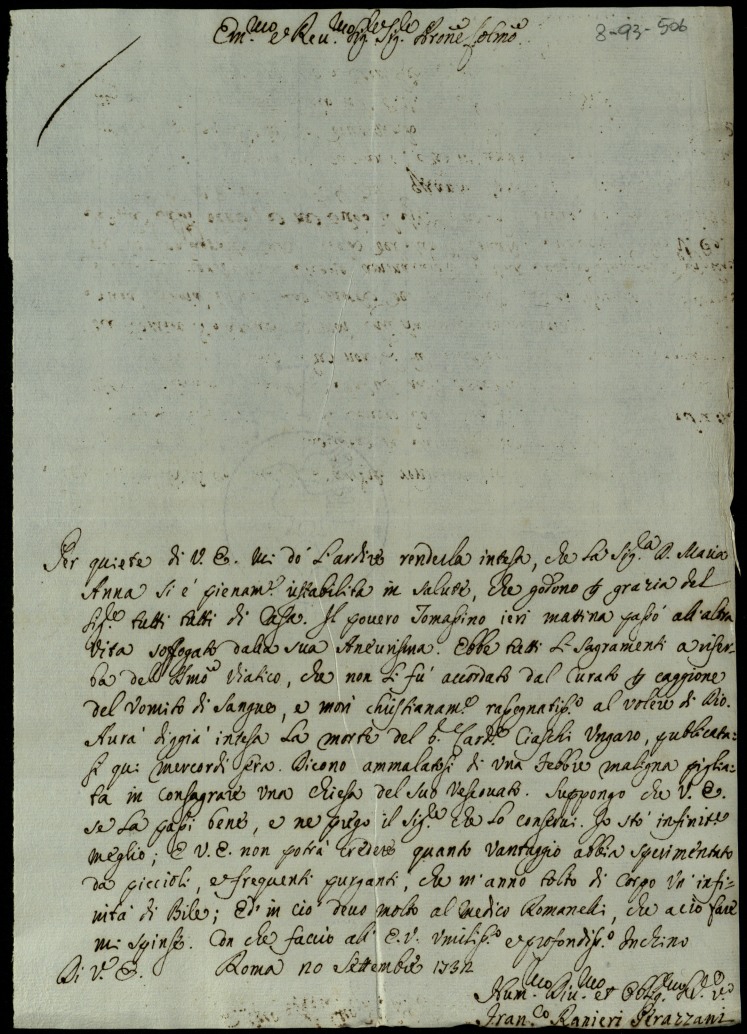 Em.mo e Rev.mo Sig.re Sig.re Prone Colmo
8-93-506
Per quiete di V. E. mi dò l'ardire renderla intesa, che la Sig.ra D. Maria
Anna si é pienam.te ristabilita in salute, che godono p grazia del
Sig.re tutti tutti di Casa. Il povero Tomasino ieri mattina passò all'altra
vita soffogato dalla sua Aneurisma. Ebbe tutti li Sagramenti a riser-
ba del SSmo Viatico, che non li fù accordato dal Curato p caggione
del Vomito di Sangue, e morì christianam.te rassegnatiss.o al volere di Dio.
Aurà diggià intesa la morte del Card.le Ciaschi Ungaro, publicata-
si qui mercordì sera. Dicono ammalatosi di una Febbre maligna piglia-
ta in consagrare una Chiesa del suo Vescovato. Suppongo che V. E.
se la passi bene, e ne prego il Sig.re che lo conservi. Io stò infinit.te
meglio; e V. E. non potrà credere quanto vantaggio abbia sperimentato
da piccioli, e frequenti purganti, che m'anno tolto di Corpo un'infi-
nità di Bile; Ed in ciò devo molto al Medico Romanelli, che a ciò fare
mi spinse. Con che faccio all'E. V. umiliss.o e profondiss.o Inchino
Di V. E. Roma 20 Settembre 1732
Hum.mo Div.mo et Oblig.mo Ser.re v.o
Fran.co Ranieri Perazzani